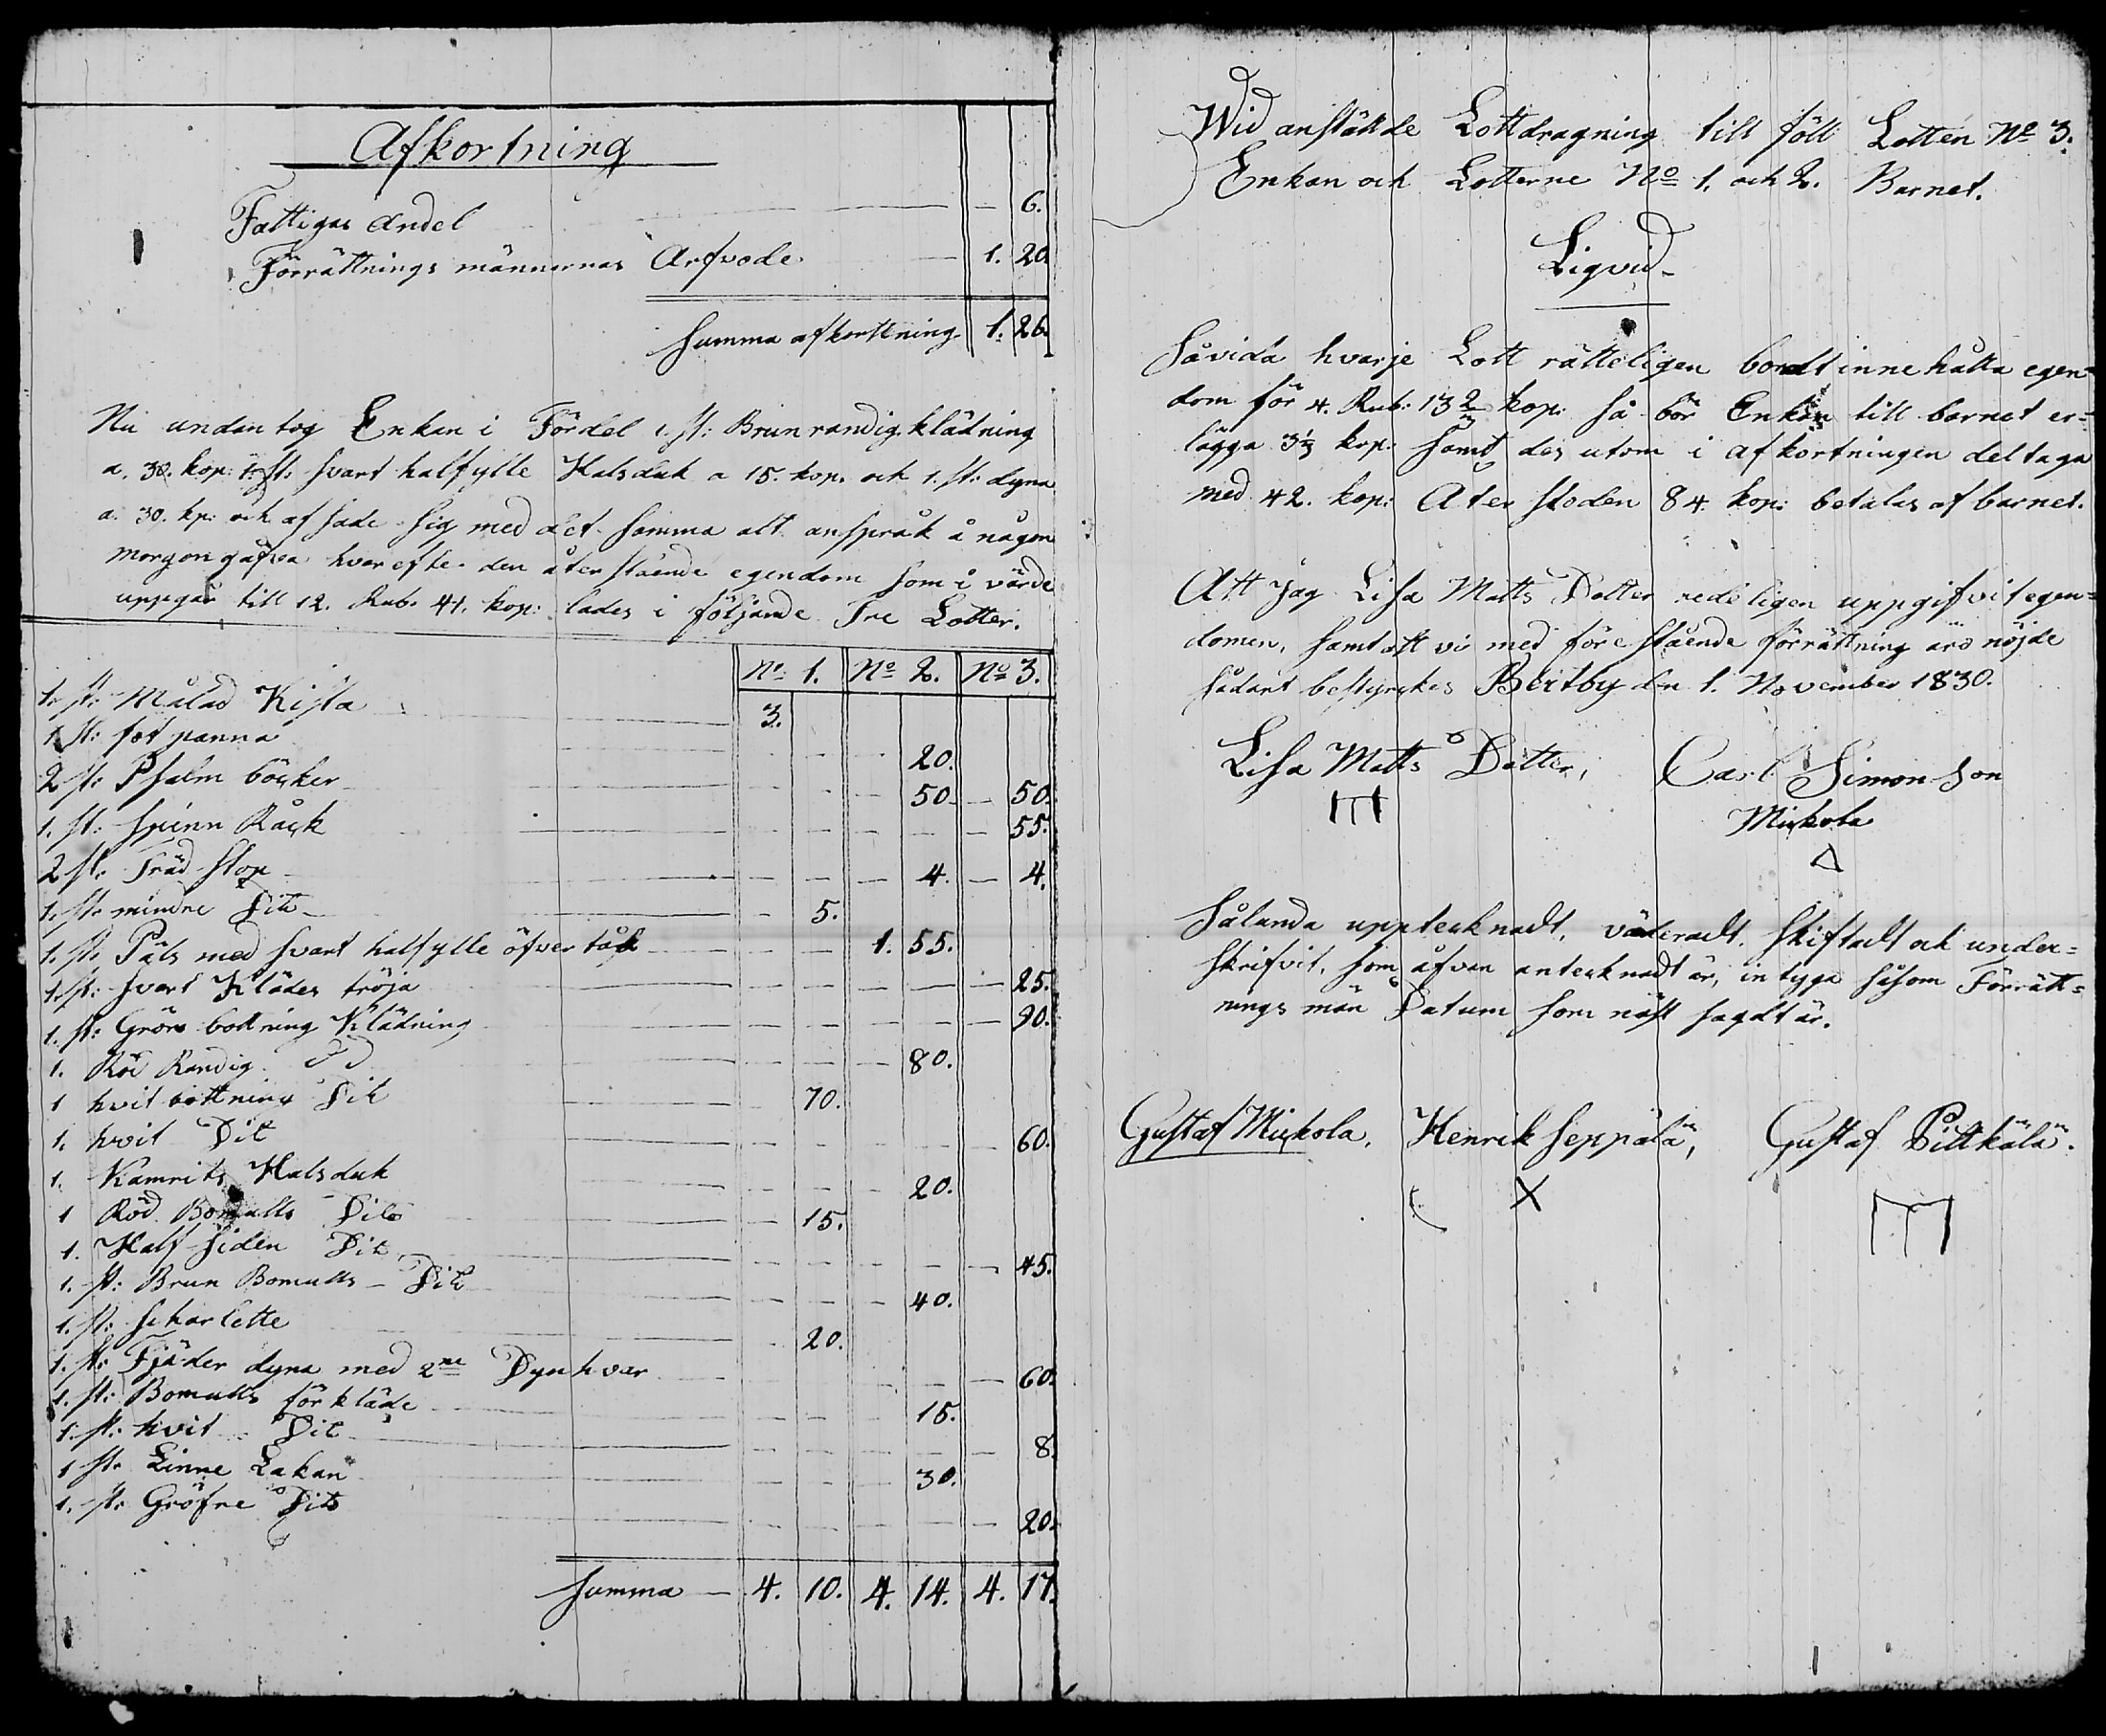 Afkortning
Fattigas andel — — 6.
Förrättnings männernas Arfvode — 1. 20.
Summa afkorttning 1. 26.
Nu undantog Enkan i Fördel 1. st: Brunrandig klädning
a. 30. kop: 1. st: svart halfylle Halsduk a 15. kop. och 1. st: dyna
a. 30. kp: och afsade sig med det samma alt anspråk å någon
morgongåfva hvarefter den återstående egendom som i värde
uppgår till 12. Rub. 41. kop: lades i följande Tre Lotter.
No 1. No 2. No 3.
1. st: Målad Kista 3.
1 st: fot panna 20.
2 st: Psalm böcker 50. 50.
1. st: Spinn Råck 55.
2 st: Träd stop 4. 4.
1. st. mindre Dito 5.
1. st. Päls med svart halfylle öfver tåg 1. 55.
1. st: svart Klädes tröja 25.
1. st: Grön bottning Klädning 90.
1. Röd Randig D:o 80.
1 hvit bottning Dito 70.
1. hvit Dito 60.
1. Kamriks Halsduk 20.
1 Röd Bomulls Dito 15.
1. Half siden Dito 45.
1. st: Brun Bomulls Dito 40.
1. st: Scharlette 20.
1. st: Fjäder dyna med 2ne Dynhvar 60.
1. st: Bomulls förkläde 15.
1. st: hvit Dito 8.
1 st. Linne Lakan 30.
1. st. Gröfre Dito 20.
Summa — 4. 10. 4. 14. 4. 17.
Wid anstäldte Lottdragning till föll Lotten No 3.
Enkan och Lotterne No 1. och 2. Barnet.
Liqvid
Såvida hvarje Lott rätteligen bordt innehålla egen=
dom för 4. Rub: 13 2/3 kop: så bör Enkan till barnet er=
lägga 3 1/3 kop: samt des utom i afkortningen deltaga
med 42. kop: Återstoden 84. kop: betalas af barnet.
Att Jag Lisa Matts Dotter redeligen uppgifvit egen=
domen, samt att vi med förestående förrättning äro nöjde
sådant bestyrckes Bertby den 1. November 1830.
Lisa Matts Dotter, Carl Simonson
Mickola
Sålunda upptecknadt, värderadt, skiftadt och under=
skrifvit, som åfvan antecknadt är, intyga såsom Förrätt=
nings män Datum som näst sagdt är.
Gustaf Mickola, Henrik Seppälä, Gustaf Pittkälä.
X